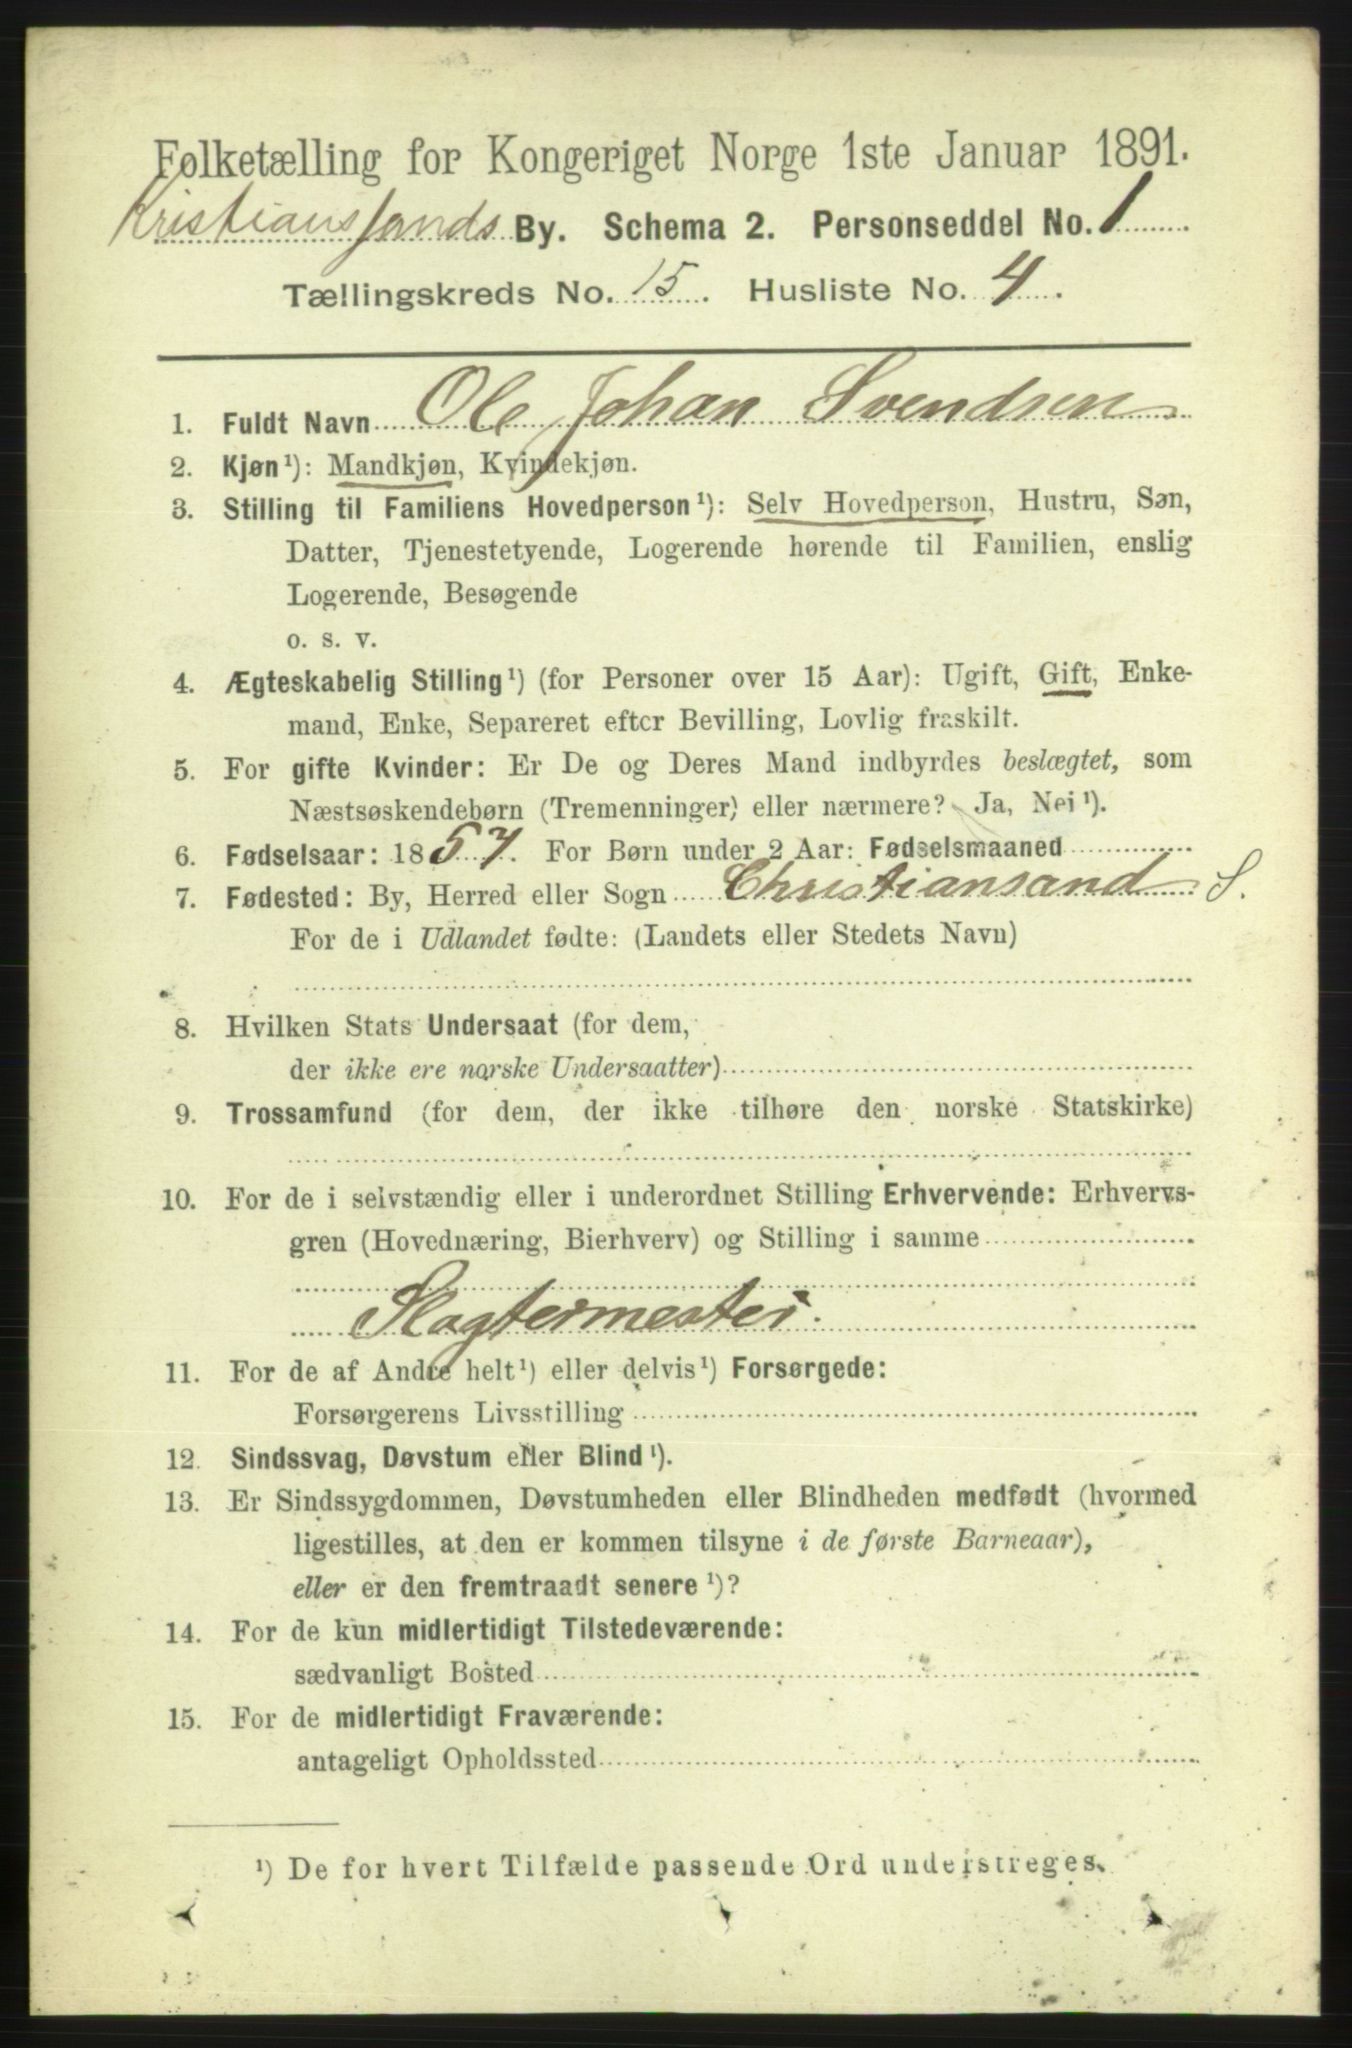 Folketælling for Kongeriget Norge 1ste Januar 1891.
Kristianssands By. Schema 2. Personseddel No. 1
Tællingskreds No. 15. Husliste No. 4.
1. Fuldt Navn Ole Johan Svendsen
2. Kjøn¹): Mandkjøn, Kvindekjøn.
3. Stilling til Familiens Hovedperson¹): Selv Hovedperson, Hustru, Søn,
Datter, Tjenestetyende, Logerende hørende til Familien, enslig
Logerende, Besøgende
o. s. v.
4. Ægteskabelig Stilling¹) (for Personer over 15 Aar): Ugift, Gift, Enke-
mand, Enke, Separeret efter Bevilling, Lovlig fraskilt.
5. For gifte Kvinder: Er De og Deres Mand indbyrdes beslægtet, som
Næstsøskendebørn (Tremenninger) eller nærmere? Ja, Nei¹).
6. Fødselsaar: 1857. For Børn under 2 Aar: Fødselsmaaned
7. Fødested: By, Herred eller Sogn Christiansand S.
For de i Udlandet fødte: (Landets eller Stedets Navn)
8. Hvilken Stats Undersaat (for dem,
der ikke ere norske Undersaatter)
9. Trossamfund (for dem, der ikke tilhøre den norske Statskirke)
10. For de i selvstændig eller i underordnet Stilling Erhvervende: Erhvervs-
gren (Hovednæring, Bierhverv) og Stilling i samme
Slagtermester.
11. For de af Andre helt¹) eller delvis¹) Forsørgede:
Forsørgerens Livsstilling
12. Sindssvag, Døvstum eller Blind¹).
13. Er Sindssygdommen, Døvstumheden eller Blindheden medfødt (hvormed
ligestilles, at den er kommen tilsyne i de første Barneaar),
eller er den fremtraadt senere¹)?
14. For de kun midlertidigt Tilstedeværende:
sædvanligt Bosted
15. For de midlertidigt Fraværende:
antageligt Opholdssted
¹) De for hvert Tilfælde passende Ord understreges.